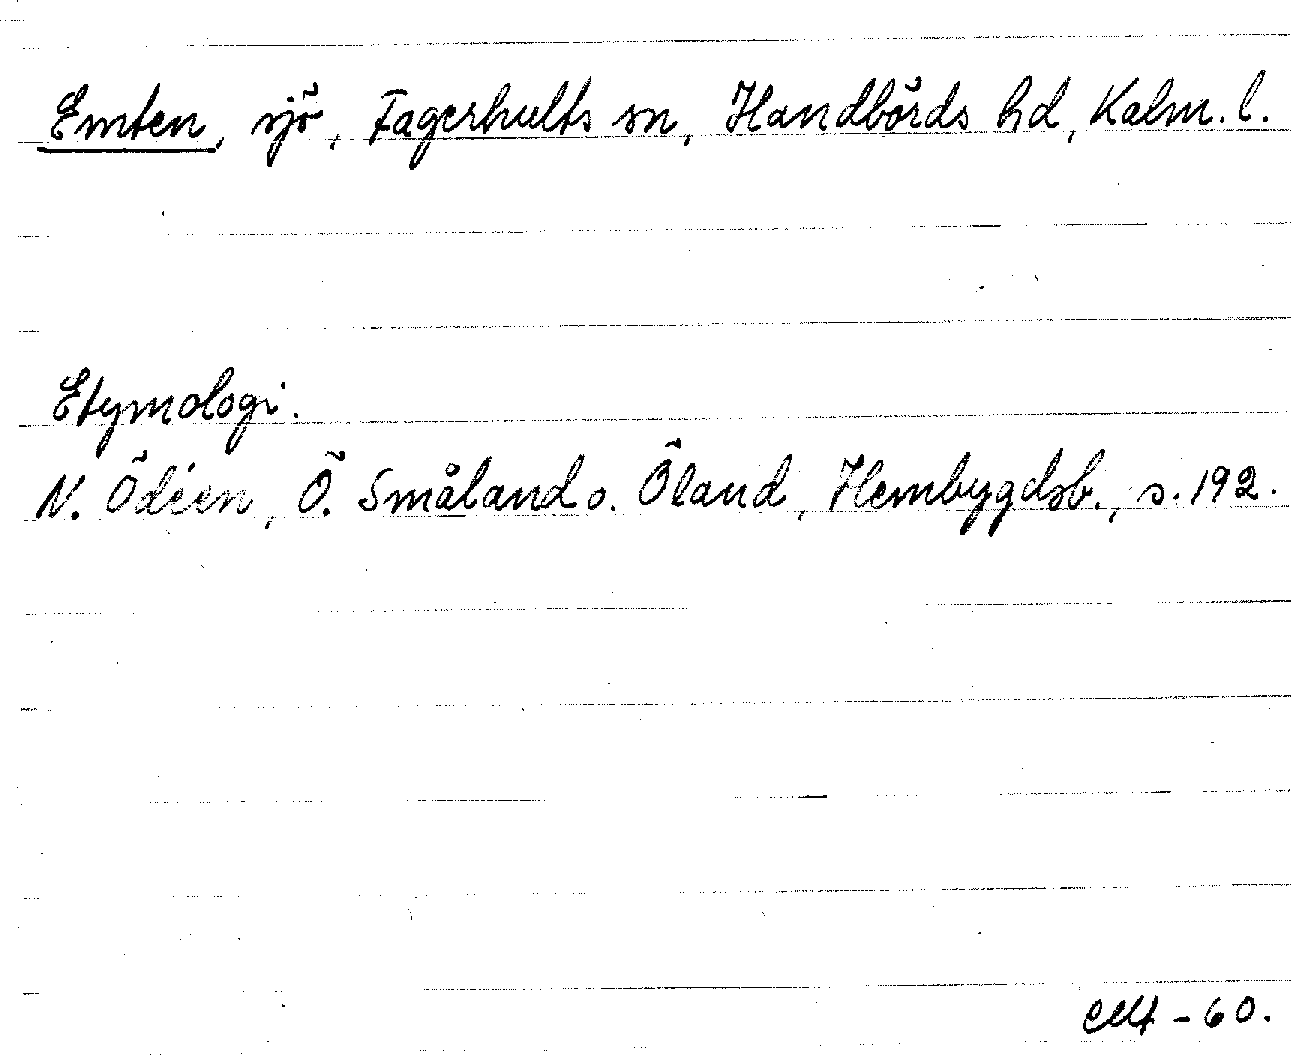 Emten, sjö, Fagerhults sn, Handbörds hd, Kalm. l.
Etymologi.
N. Ödéen, Ö. Småland o. Öland, Hembygdsb., s. 192.
-60.